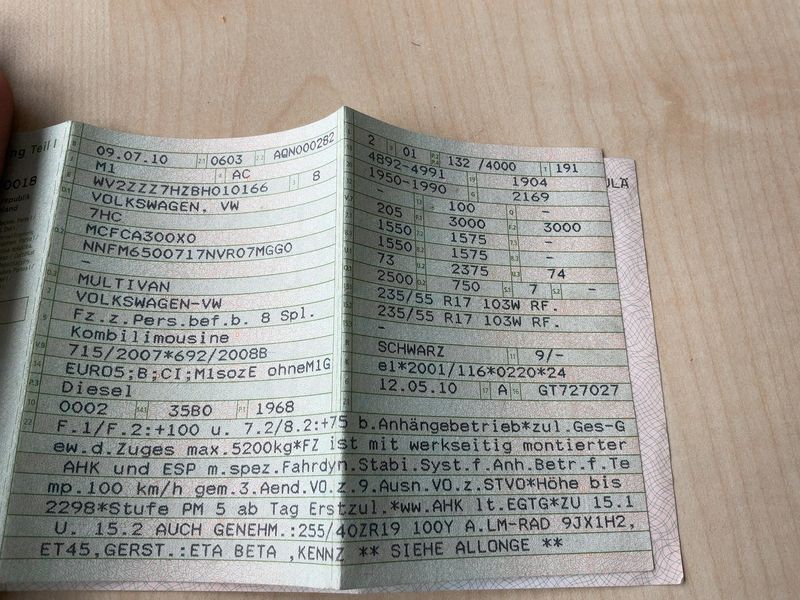 ng Teil I
09.07.10 0603 AQN000282
M1 AC
WV2ZZZ7HZBH010166 8
VOLKSWAGEN, VW
7HC
MCFCA300X0
NNFM6500717NVR07MGG0
-
MULTIVAN
VOLKSWAGEN-VW
Fz.z.Pers.bef.b. 8 Spl.
Kombilimousine
715/2007*692/2008B
EURO5;B;CI;M1sozE ohneM1G
Diesel
0002 35B0 1968
2 01 132 /4000 191
4892-4991 1904
1950-1990 2169
- 100 - -
205 3000 3000
1550 1575 -
1550 1575 -
73 2375 74
2500 750 7 -
235/55 R17 103W RF.
235/55 R17 103W RF.
-
SCHWARZ 9/-
e1*2001/116*0220*24
12.05.10 A GT727027
F.1/F.2:+100 u. 7.2/8.2:+75 b.Anhängebetrieb*zul.Ges-G
ew.d.Zuges max.5200kg*FZ ist mit werkseitig montierter
AHK und ESP m.spez.Fahrdyn.Stabi.Syst.f.Anh.Betr.f.Te
mp.100 km/h gem.3.Aend.VO.z.9.Ausn.VO.z.STVO*Höhe bis
2298*Stufe PM 5 ab Tag Erstzul.*ww.AHK lt.EGTG*ZU 15.1
U. 15.2 AUCH GENEHM.:255/40ZR19 100Y A.LM-RAD 9JX1H2,
ET45,GERST.:ETA BETA ,KENNZ ** SIEHE ALLONGE **